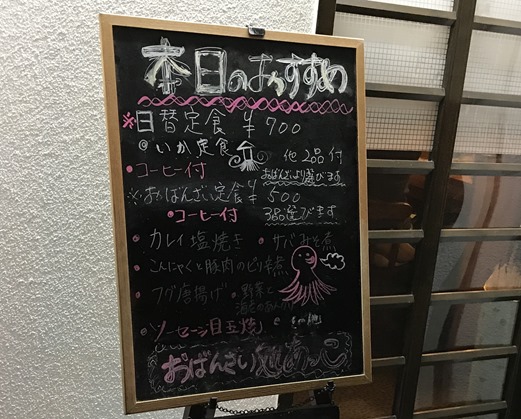 本日のおすすめ
※日替定食 ¥700
@いか定食 他2品付
・コーヒー付 おばんざいより選びます
※おばんざい定食 ¥500
・コーヒー付 3品選びます
・カレイ塩焼き ・サバみそ煮
・こんにゃくと豚肉のピリ辛煮
・フグ唐揚げ ・野菜と
・ソーセージ目玉焼
おばんざい